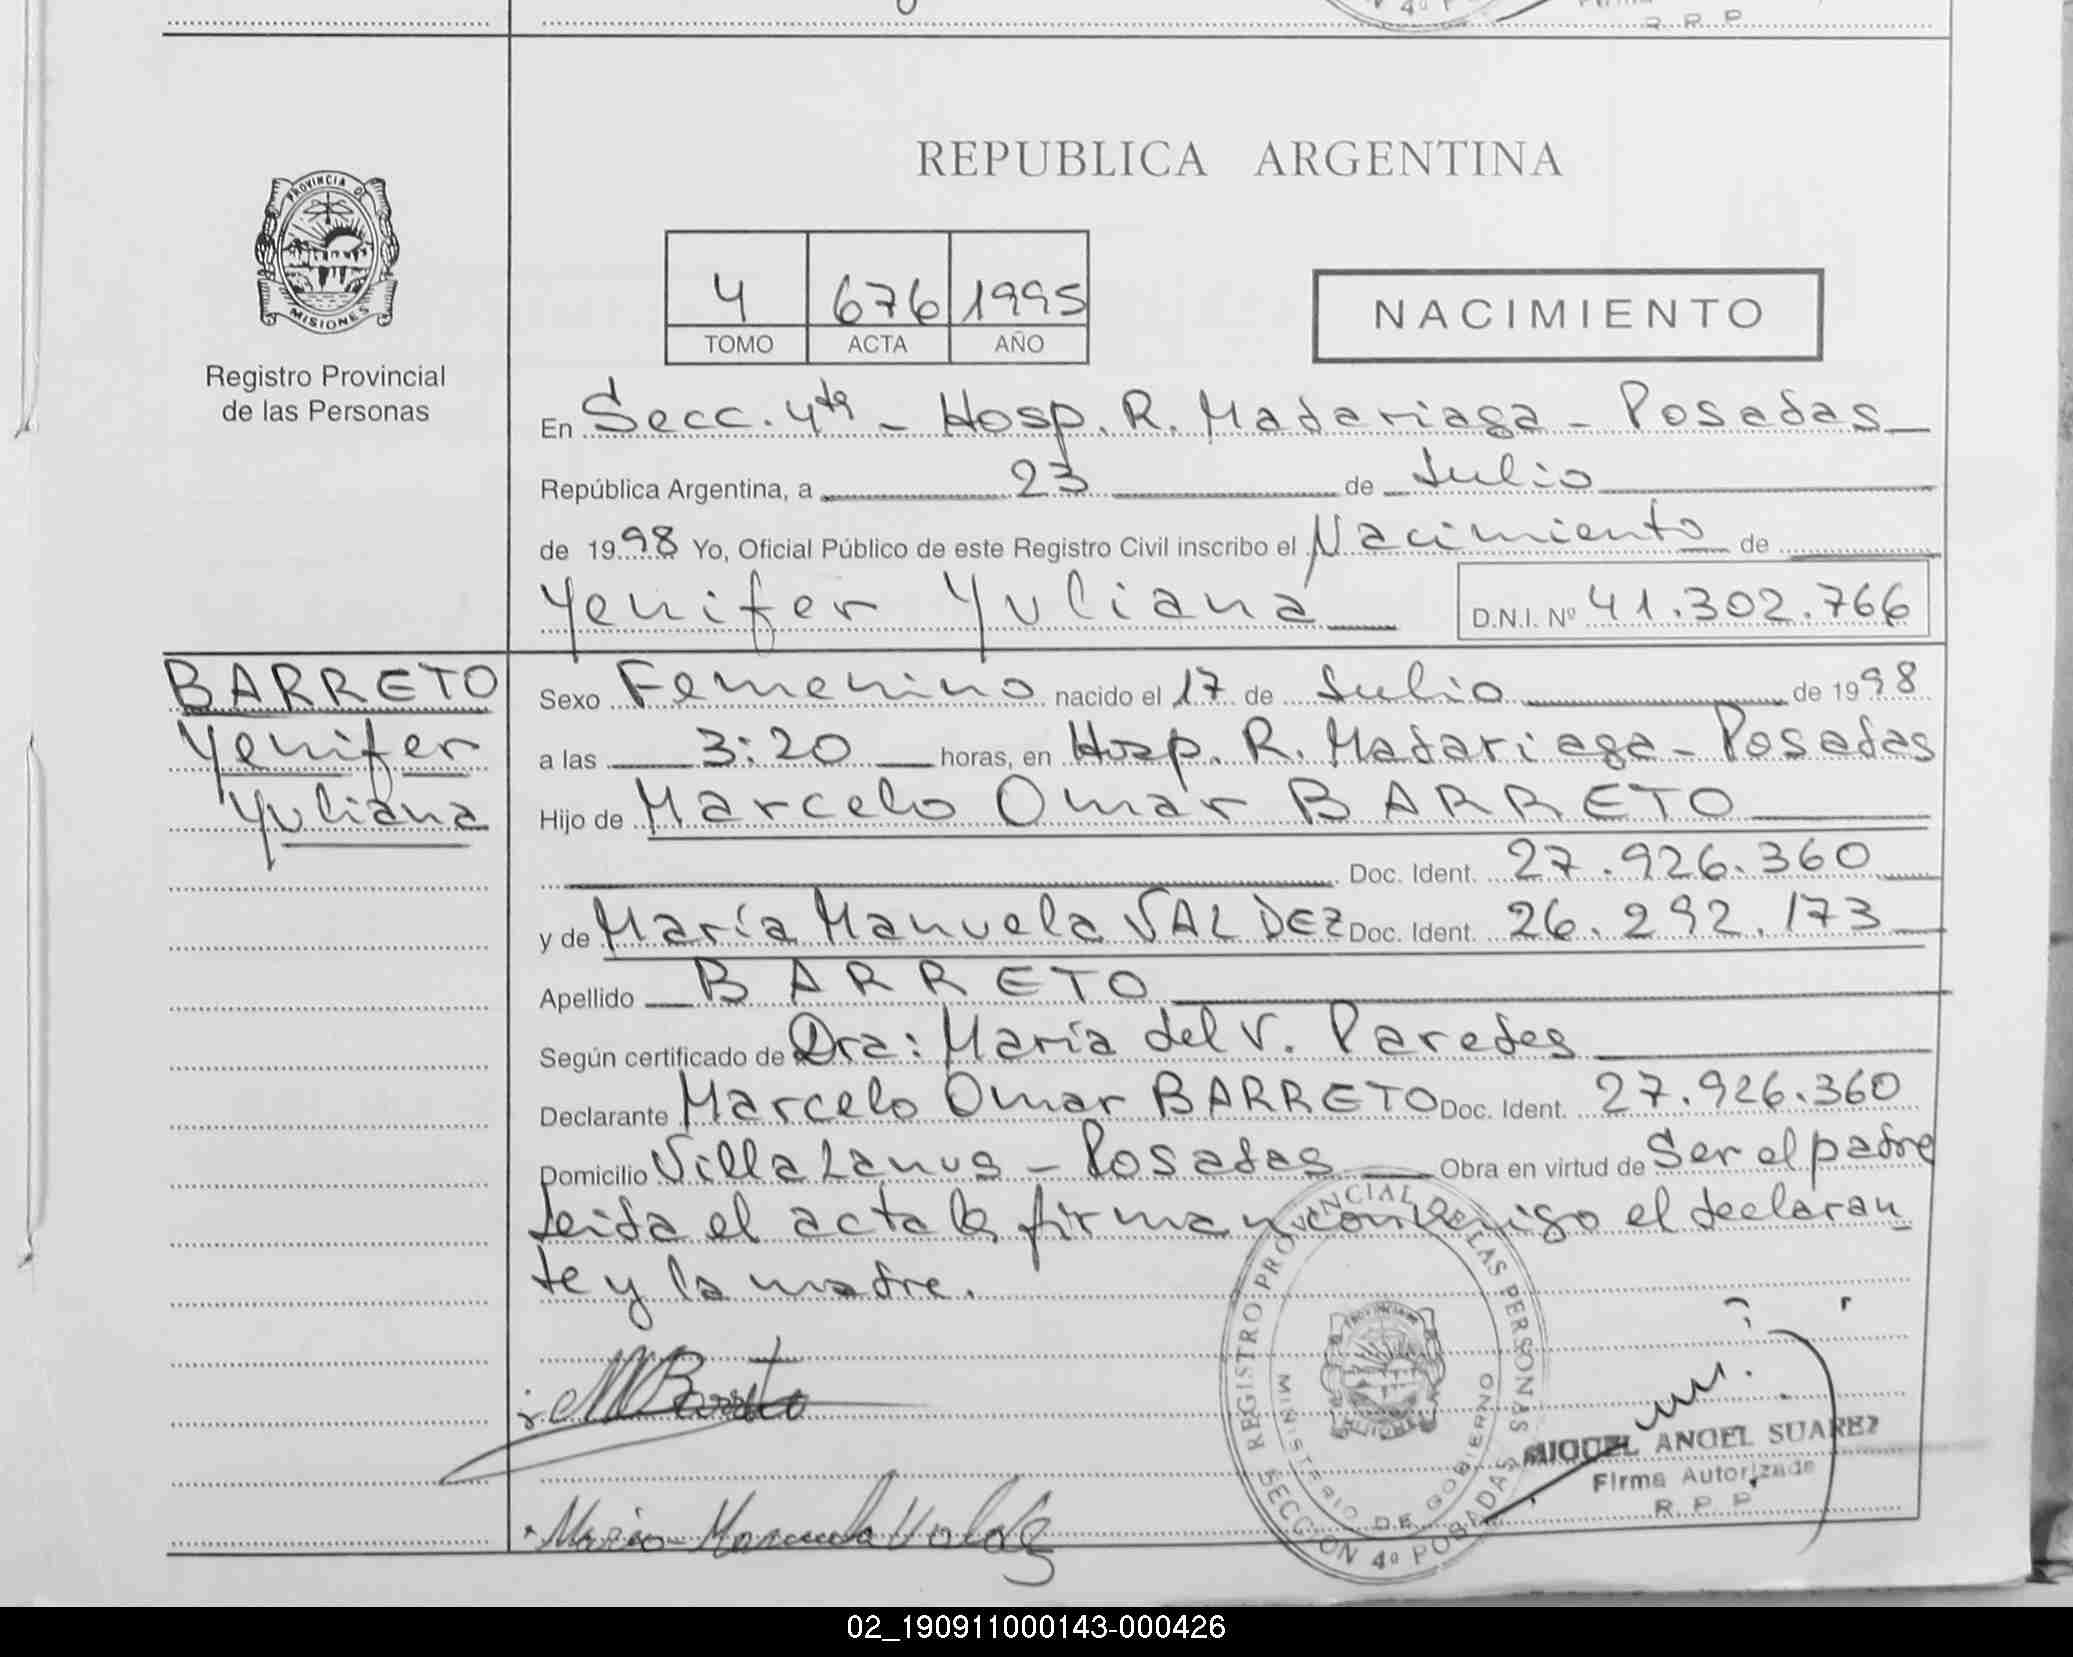 R. P. P.
REPUBLICA ARGENTINA
PROVINCIA DE
MISIONES
Registro Provincial
de las Personas
4 676 1995
TOMO ACTA AÑO
NACIMIENTO
En Secc. 4ta - Hosp. R. Madariaga - Posadas
República Argentina, a 23 de Julio
de 1998 Yo, Oficial Público de este Registro Civil inscribo el Nacimiento de
Yenifer Yuliana D.N.I. Nº 41.302.766
BARRETO
Yenifer
Yuliana
Sexo Femenino nacido el 17 de Julio de 1998
a las 3:20 horas, en Hosp. R. Madariaga - Posadas
Hijo de Marcelo Omar BARRETO
Doc. Ident. 27.926.360
y de María Manuela VALDEZ Doc. Ident. 26.292.173
Apellido BARRETO
Según certificado de Dra: María del V. Paredes
Declarante Marcelo Omar BARRETO Doc. Ident. 27.926.360
Domicilio Villa Lanus - Posadas Obra en virtud de Ser el padre
Leida el acta la firman conmigo el declaran-
te y la madre.
MBarreto
Maria Manuela Valdez
REGISTRO PROVINCIAL DE LAS PERSONAS
SECCION 4º POSADAS
MINISTERIO DE GOBIERNO
MIGUEL ANGEL SUAREZ
Firma Autorizada
R. P. P.
02_190911000143-000426